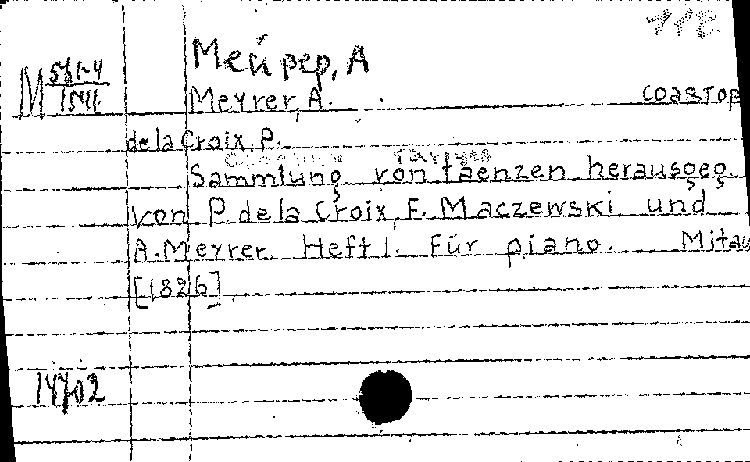 Мейрер, А
M
Meyrer, A. соавтор
de la Croix, P.
Sammlung von taenzen herausgeg.
von P. de la Croix, F. Maczewski und
A. Meyrer. Heft 1. Für piano. Mitau
[1826]
14702